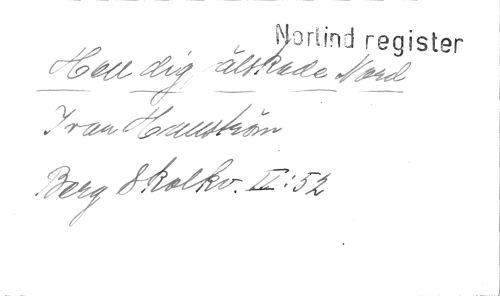 Norlind register
Hell dig, älskade Nord
Ivan Hallström
Berg Skolkv. II:52